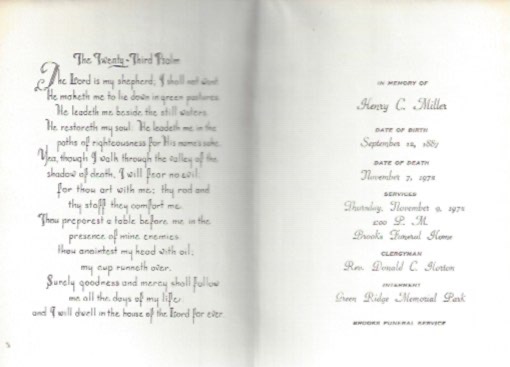 The Twenty-Third Psalm
The Lord is my shepherd; I shall not want.
He maketh me to lie down in green pastures.
He leadeth me beside the still waters.
He restoreth my soul: He leadeth me in the
paths of righteousness for His names sake.
Yea, though I walk through the valley of the
shadow of death, I will fear no evil:
for thou art with me; thy rod and
thy staff they comfort me.
Thou preparest a table before me in the
presence of mine enemies
thou anointest my head with oil;
my cup runneth over.
Surely goodness and mercy shall follow
me all the days of my life:
and I will dwell in the house of the Lord for ever.
IN MEMORY OF
Henry C. Miller
DATE OF BIRTH
September 12, 1887
DATE OF DEATH
November 7, 1972
SERVICES
Thursday, November 9, 1972
P. M.
Brooks Funeral Home
CLERGYMAN
Rev. Donald C. Horton
INTERMENT
Green Ridge Memorial Park
BROOKS FUNERAL SERVICE